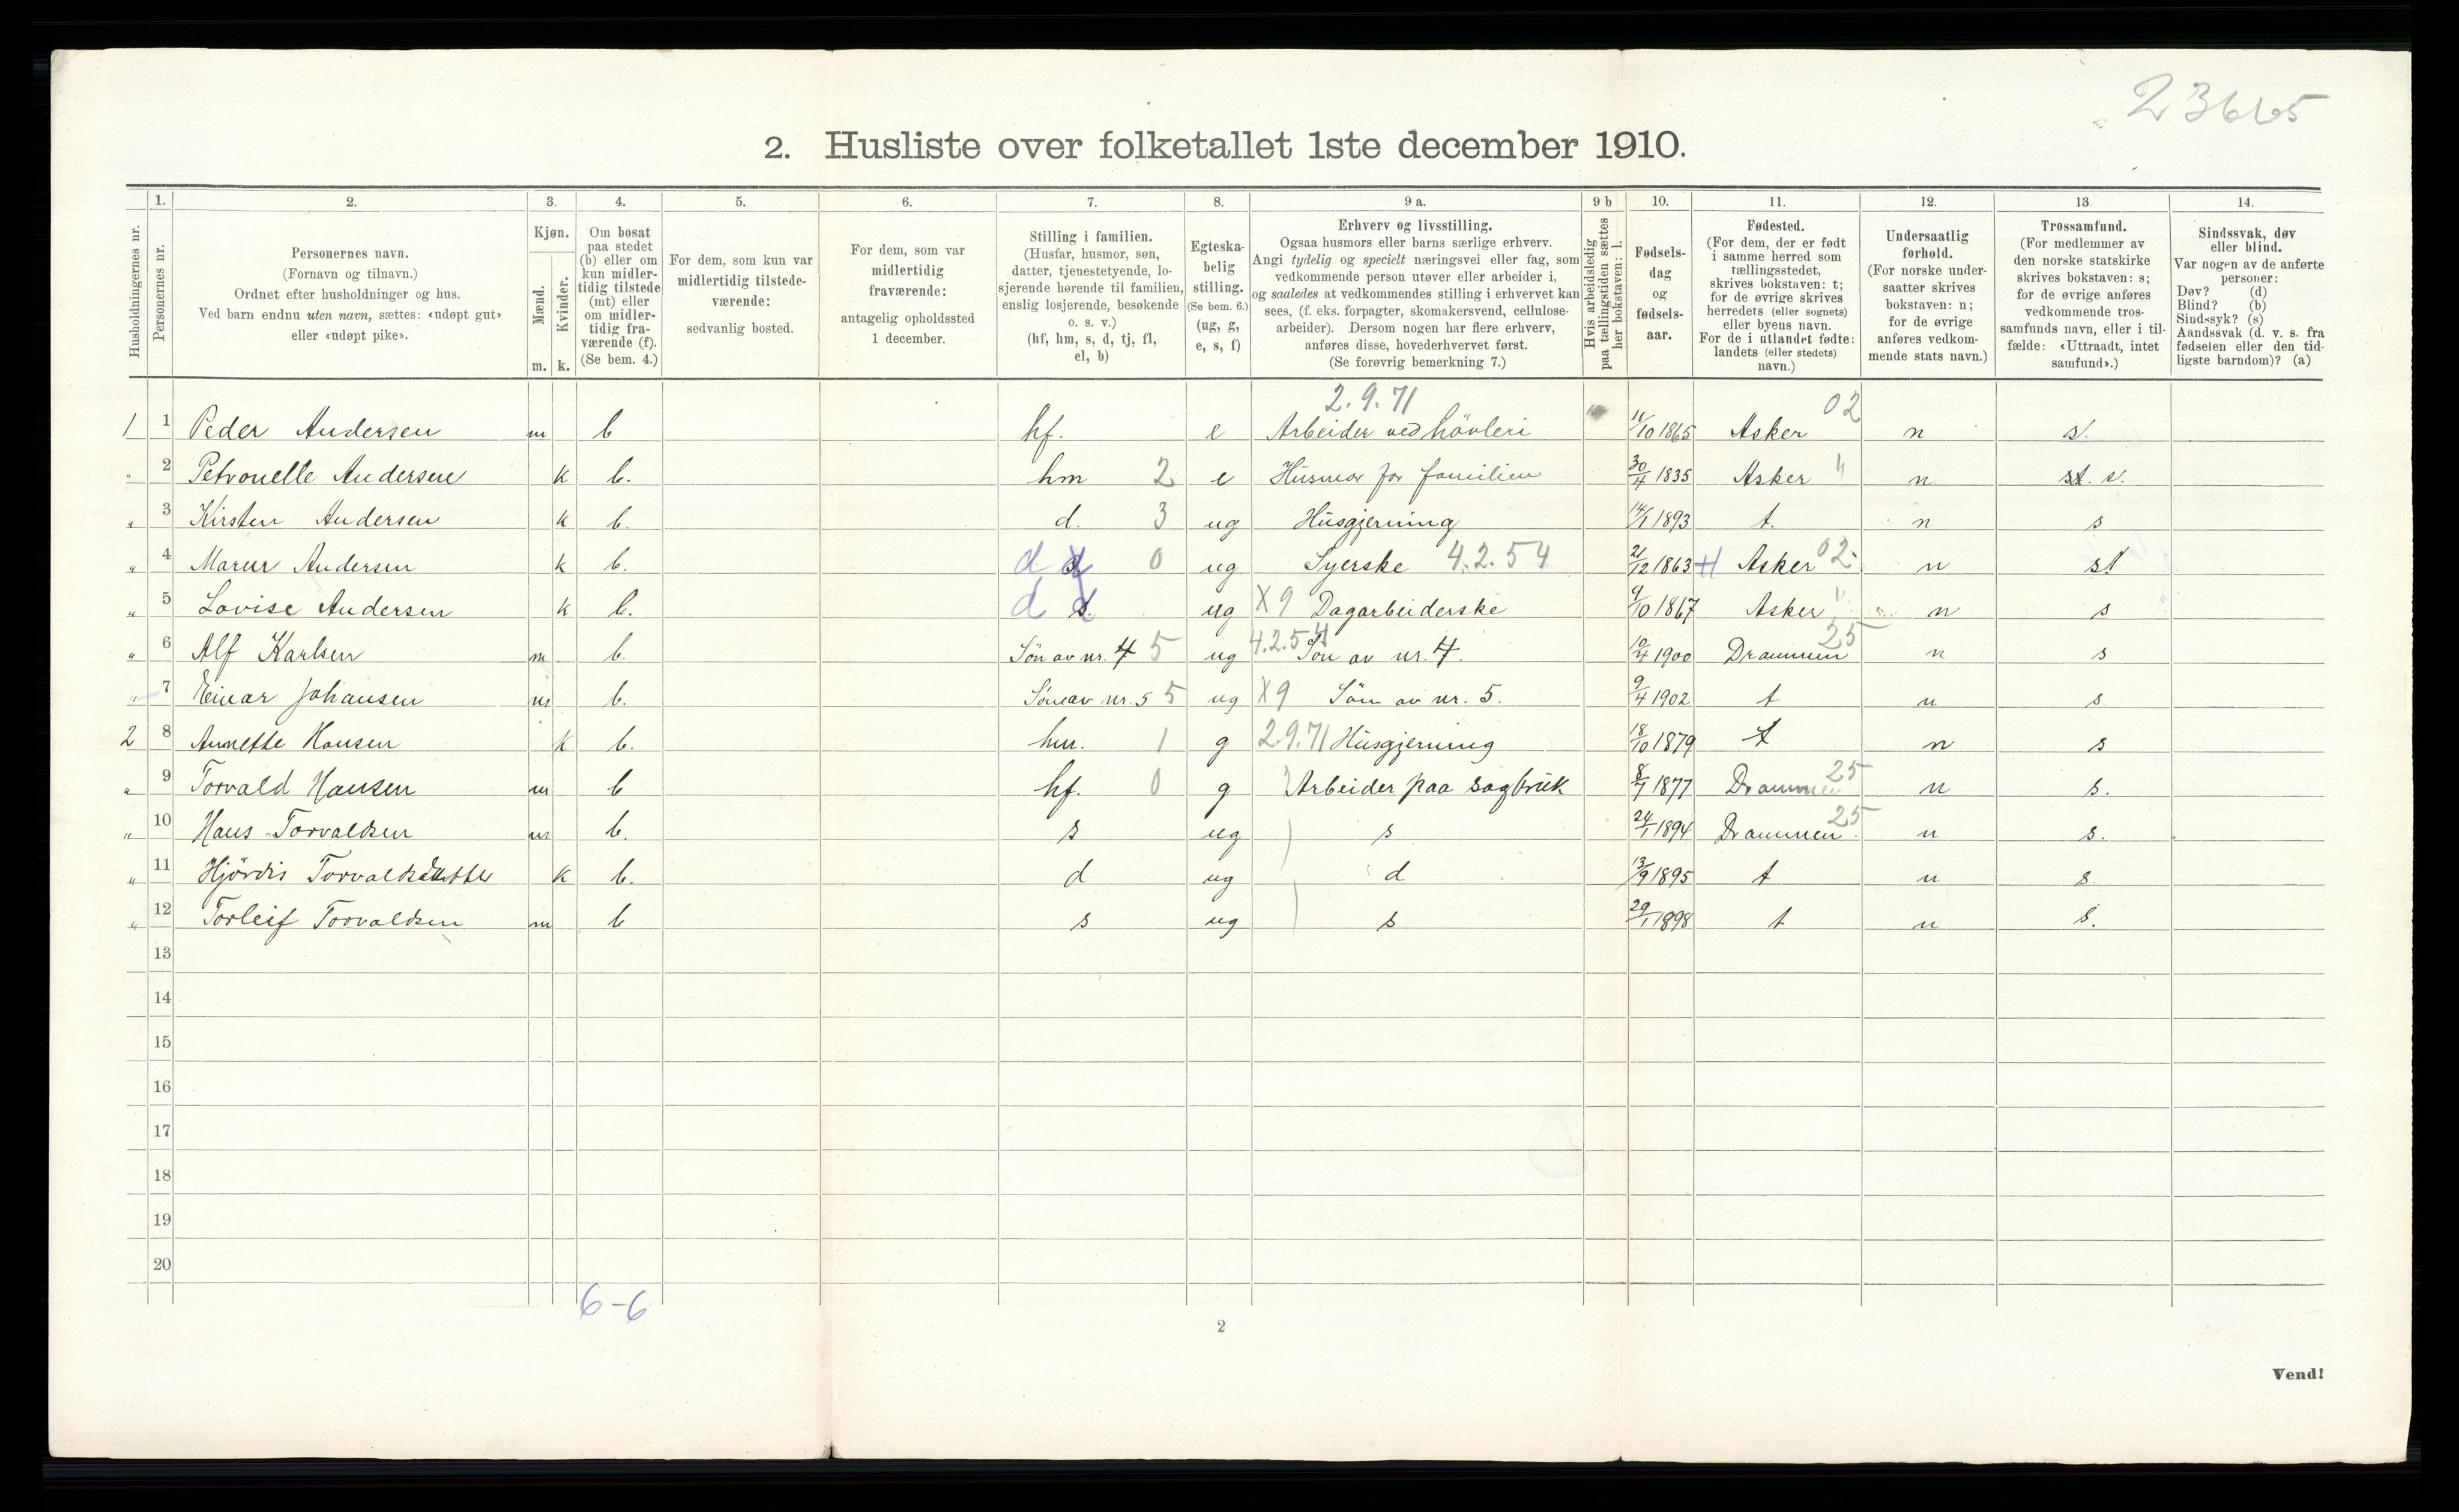 23665
2. Husliste over folketallet 1ste december 1910.
Husholdningernes nr.
1.
Personernes nr.
2.
Personernes navn.
(Fornavn og tilnavn.)
Ordnet efter husholdninger og hus.
Ved barn endnu uten navn, sættes: «udøpt gut»
eller «udøpt pike».
3.
Kjøn.
Mænd.
Kvinder.
m. k.
4.
Om bosat
paa stedet
(b) eller om
kun midler-
tidig tilstede
(mt) eller
om midler-
tidig fra-
værende (f).
(Se bem. 4.)
5.
For dem, som kun var
midlertidig tilstede-
værende:
sedvanlig bosted.
6.
For dem, som var
midlertidig
fraværende:
antagelig opholdssted
1 december.
7.
Stilling i familien.
(Husfar, husmor, søn,
datter, tjenestetyende, lo-
sjerende hørende til familien,
enslig losjerende, besøkende
o. s. v.)
(hf, hm, s, d, tj, fl,
el, b)
8.
Egteska-
belig
stilling.
(Se bem. 6.)
(ug, g,
e, s, f)
9 a.
Erhverv og livsstilling.
Ogsaa husmors eller barns særlige erhverv.
Angi tydelig og specielt næringsvei eller fag, som
vedkommende person utøver eller arbeider i,
og saaledes at vedkommendes stilling i erhvervet kan
sees, (f. eks. forpagter, skomakersvend, cellulose-
arbeider). Dersom nogen har flere erhverv,
anføres disse, hovederhvervet først.
(Se forøvrig bemerkning 7.)
9 b
Hvis arbeidsledig
paa tællingstiden sættes
her bokstaven: l.
10.
Fødsels-
dag
og
fødsels-
aar.
11.
Fødested.
(For dem, der er født
i samme herred som
tællingsstedet,
skrives bokstaven: t;
for de øvrige skrives
herredets (eller sognets)
eller byens navn.
For de i utlandet fødte:
landets (eller stedets)
navn.)
12.
Undersaatlig
forhold.
(For norske under-
saatter skrives
bokstaven: n;
for de øvrige
anføres vedkom-
mende stats navn.)
13.
Trossamfund.
(For medlemmer av
den norske statskirke
skrives bokstaven: s;
for de øvrige anføres
vedkommende tros-
samfunds navn, eller i til-
fælde: «Uttraadt, intet
samfund».)
14.
Sindssvak, døv
eller blind.
Var nogen av de anførte
personer:
Døv? (d)
Blind? (b)
Sindssyk? (s)
Aandssvak (d. v. s. fra
fødselen eller den tid-
ligste barndom)? (a)
2.9.71 02
1 1 Peder Andersen m b hf. e Arbeider ved hövleri 11/10 1865 Asker n s.
" 2 Petronelle Andersen k b. hm 2 e Husmor for familien 30/4 1835 Asker " n s.
" 3 Kirsten Andersen k b. d. 3 ug Husgjerning 14/1 1893 t. n s
" 4 Andersen k b. d d 0 ug Syerske 4.2.54 21/12 1863 Asker 02 n st
" 5 Lovise Andersen k b. d s. ug X9 Dagarbeiderske 9/10 1867 Asker " n s
" 6 Alf Karlsen m b. Sön av nr. 4 5 ug 4.2.54 Sön av nr. 4. 10/4 1900 Drammen 25 n s
" 7 Einar Johansen m b. Sön av nr. 5 5 ug X9 Sön av nr. 5. 9/4 1902 t n s
2 8 Annette Hansen k b. hm. 1 g 2.9.71 Husgjerning 18/10 1879 t n s
" 9 Torvald Hansen m b hf. 0 g Arbeider paa sagbruk 8/7 1877 Drammen 25 n s.
" 10 Hans Torvaldsen m b. s ug s 24/1 1894 Drammen 25 n s.
" 11 Hjördis Torvaldsdatter k b. d ug d 13/9 1895 t n s.
" 12 Torleif Torvaldsen m b s ug s 29/1 1898 t n s.
13
14
15
16
17
18
19
20
6-6
2
Vend!